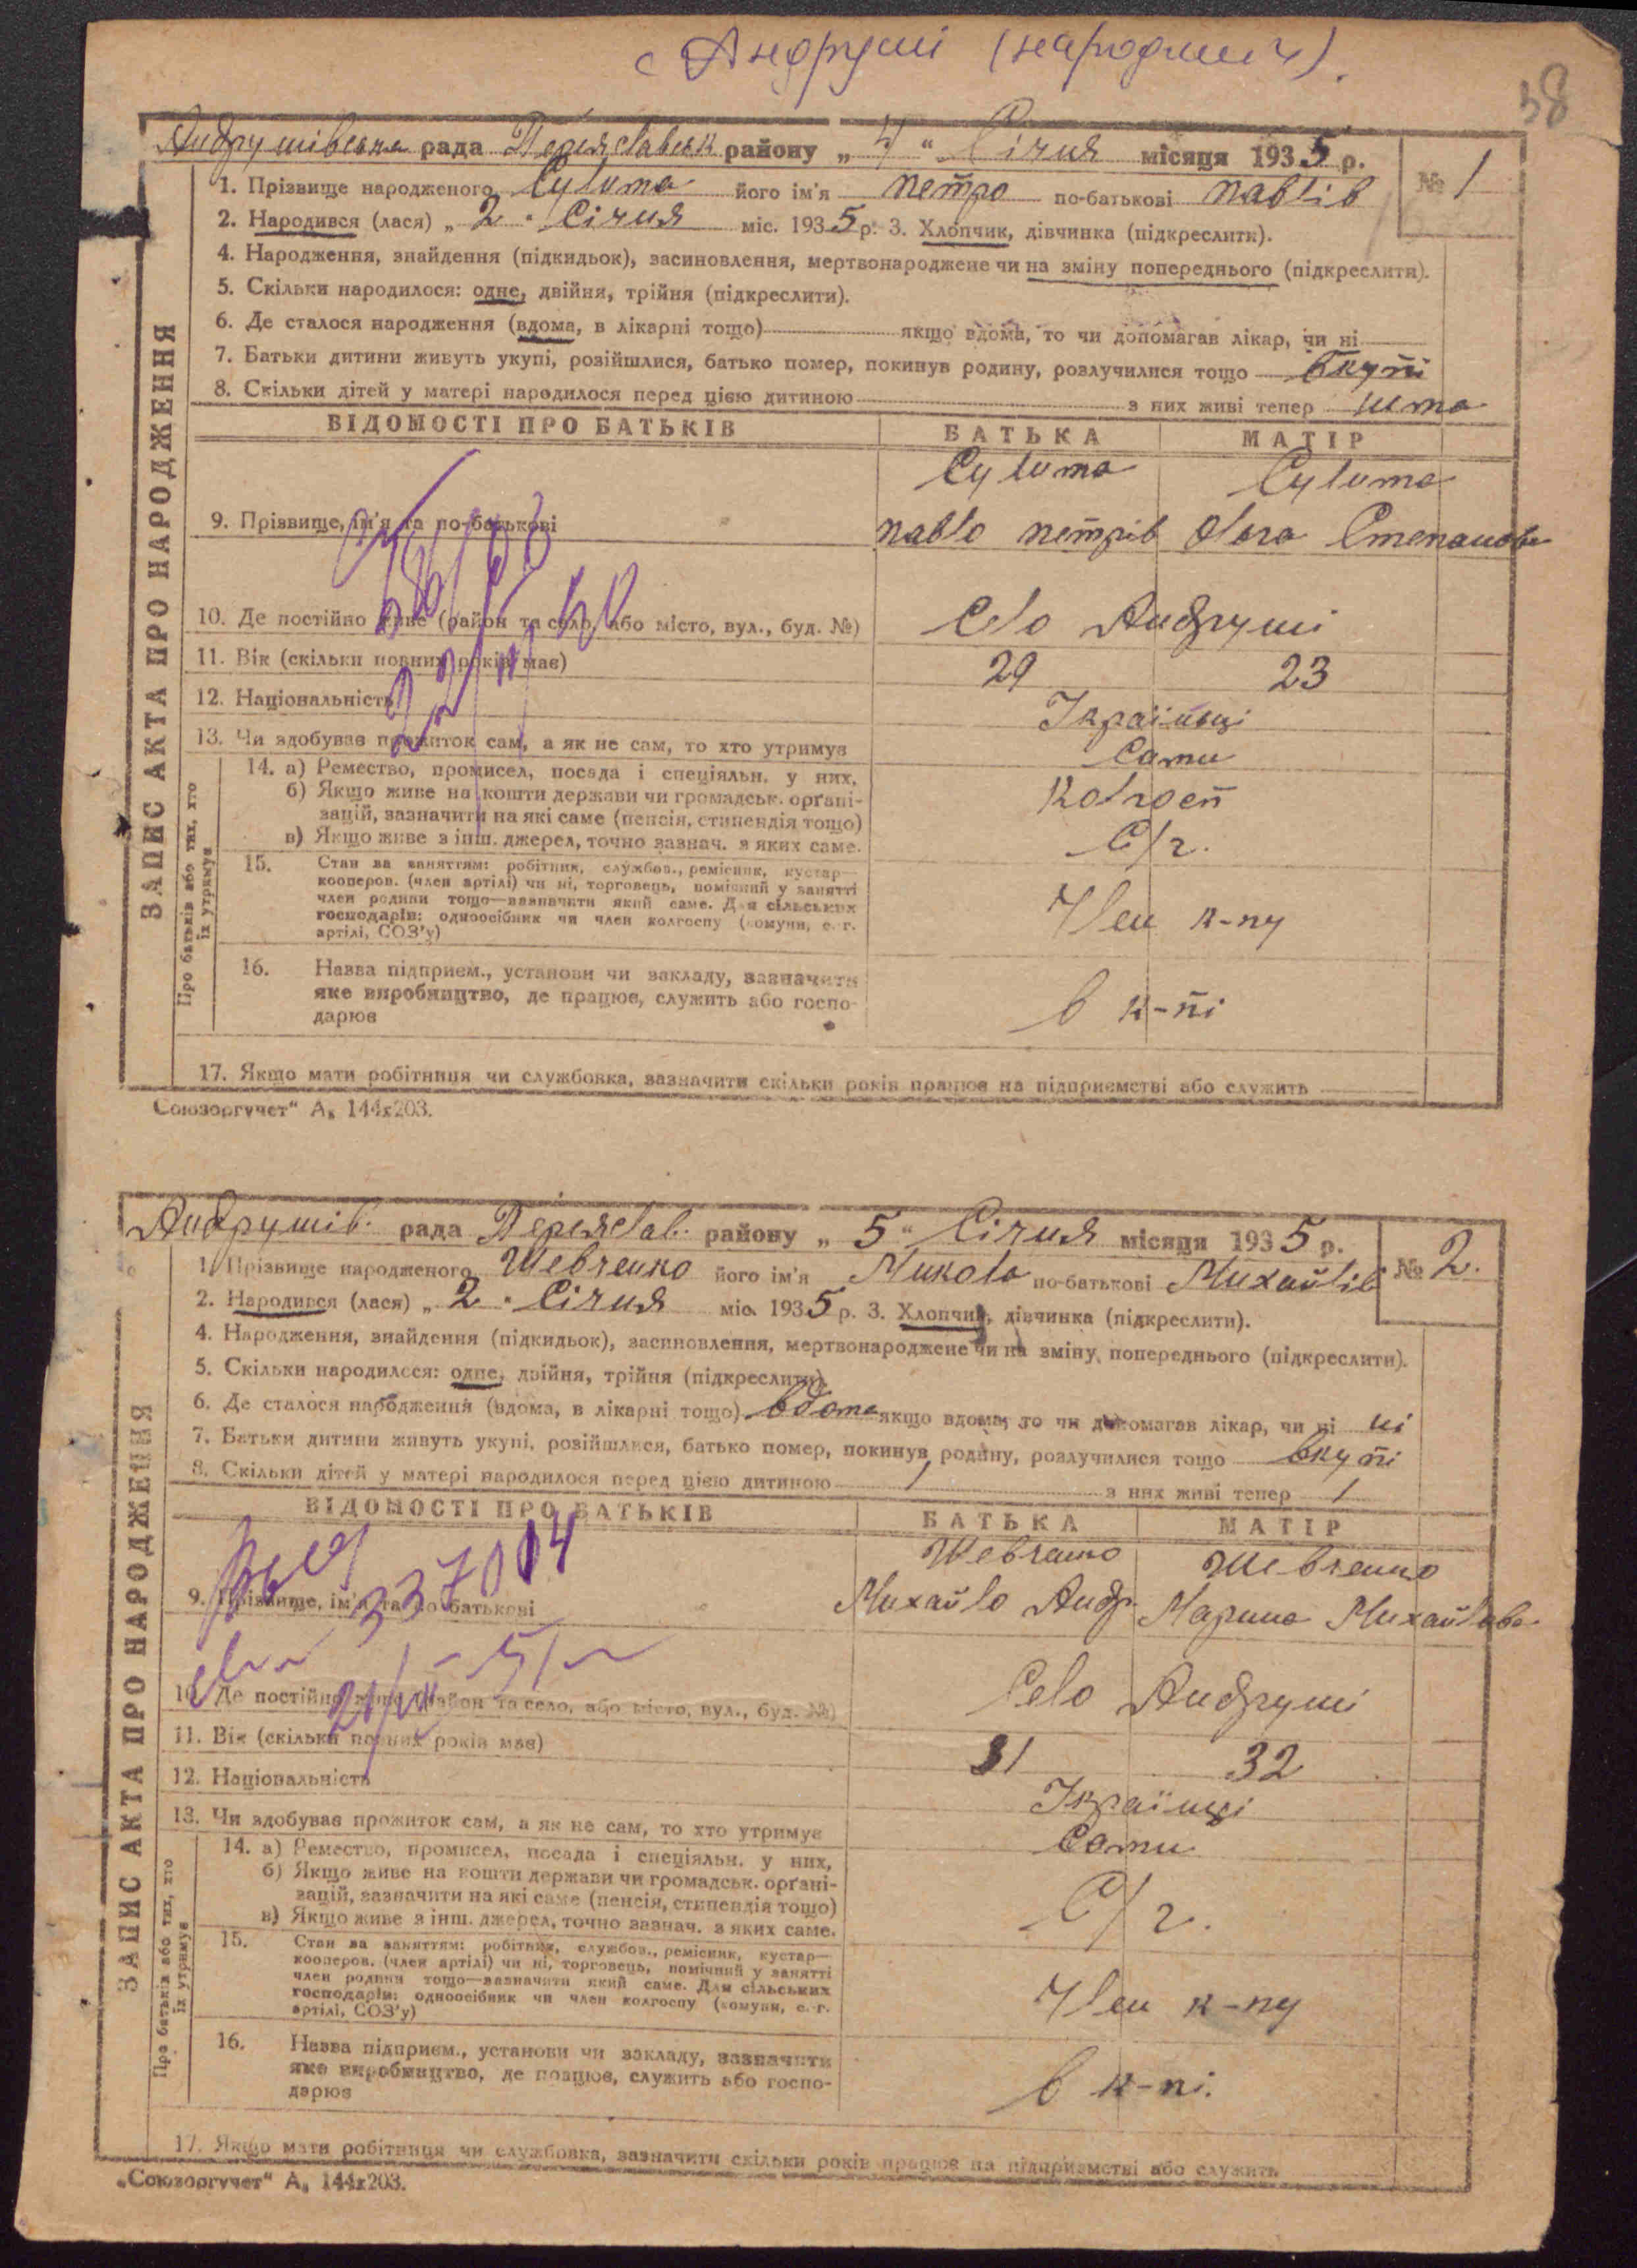 с Андруші (народжен).
38
Андрушівська рада Переяславськ району „ 4 “ Січня місяця 1935 р. № 1
1. Прізвище народженого Сулима його ім'я петро по-батькові павлів
2. Народився (лася) „ 2 “ Січня міс. 1935 р. 3. Хлопчик, дівчинка (підкреслити).
4. Народження, знайдення (підкидьок), засиновлення, мертвонароджене чи на зміну попереднього (підкреслити).
5. Скільки народилося: одне, двійня, трійня (підкреслити).
6. Де сталося народження (вдома, в лікарні тощо) якщо вдома, то чи допомагав лікар, чи ні
7. Батьки дитини живуть укупі, розійшлися, батько помер, покинув родину, розлучилися тощо вкупі
8. Скільки дітей у матері народилося перед цією дитиною з них живі тепер
ВІДОМОСТІ ПРО БАТЬКІВ БАТЬКА МАТІР
Сулима Сулима
9. Прізвище, ім'я та по-батькові павло петрів Степанова
10. Де постійно живе (район та село, або місто, вул., буд. №) Село Андруші
11. Вік (скільки повних років має) 29 23
12. Національність Українці
13. Чи здобував прожиток сам, а як не сам, то хто утримує Сами
14. а) Ремество, промисел, посада і спеціяльн. у них, Колгосп
б) Якщо живе на кошти держави чи громадськ. орґані-
зацій, зазначити на які саме (пенсія, стипендія тощо) С/г.
в) Якщо живе з інш. джерел, точно зазнач. з яких саме.
15. Стан за заняттям: робітник, службов., ремісник, кустар—
кооперов. (член артілі) чи ні, торговець, помічний у занятті
член родини тощо—зазначити який саме. Для сільських
господарів: одноосібник чи член колгоспу (комуни, с. г. Член к-пу
артілі, СОЗ'у)
16. Назва підприєм., установи чи закладу, зазначити
яке виробництво, де працює, служить або госпо- в к-пі
дарює
17. Якщо мати робітниця чи службовка, зазначити скільки років працює на підприємстві або служить
Союзоргучет“ А₅ 144х203.
ЗАПИС АКТА ПРО НАРОДЖЕННЯ
Про батьків або тих, хто
їх утримує
Андрушів. рада Переяслав. району „ 5 “ Січня місяця 1935 р. № 2.
1. Прізвище народженого Шевченко його ім'я Микола по-батькові Михайлів
2. Народився (лася) „ 2 “ Січня міс. 1935 р. 3. Хлопчик, дівчинка (підкреслити).
4. Народження, знайдення (підкидьок), засиновлення, мертвонароджене чи на зміну попереднього (підкреслити).
5. Скільки народилося: одне, двійня, трійня (підкреслити).
6. Де сталося народження (вдома, в лікарні тощо) вдома якщо вдома, то чи допомагав лікар, чи ні ні
7. Батьки дитини живуть укупі, розійшлися, батько помер, покинув родину, розлучилися тощо вкупі
8. Скільки дітей у матері народилося перед цією дитиною 1 з них живі тепер 1
ВІДОМОСТІ ПРО БАТЬКІВ БАТЬКА МАТІР
Шевченко Шевченко
9. Прізвище, ім'я та по-батькові Михайло Андр. Марина Михайлова
337014
10. Де постійно живе (район та село, або місто, вул., буд. №) Село Андруші
11. Вік (скільки повних років має) 31 32
12. Національність Українці
13. Чи здобував прожиток сам, а як не сам, то хто утримує Сами
14. а) Ремество, промисел, посада і спеціяльн. у них,
б) Якщо живе на кошти держави чи громадськ. орґані-
зацій, зазначити на які саме (пенсія, стипендія тощо) С/г.
в) Якщо живе з інш. джерел, точно зазнач. з яких саме.
15. Стан за заняттям: робітник, службов., ремісник, кустар—
кооперов. (член артілі) чи ні, торговець, помічний у занятті
член родини тощо—зазначити який саме. Для сільських
господарів: одноосібник чи член колгоспу (комуни, с. г. Член к-пу
артілі, СОЗ'у)
16. Назва підприєм., установи чи закладу, зазначити
яке виробництво, де працює, служить або госпо- в к-пі.
дарює
17. Якщо мати робітниця чи службовка, зазначити скільки років працює на підприємстві або служить
„Союзоргучет“ А₅ 144х203.
ЗАПИС АКТА ПРО НАРОДЖЕННЯ
Про батьків або тих, хто
їх утримує